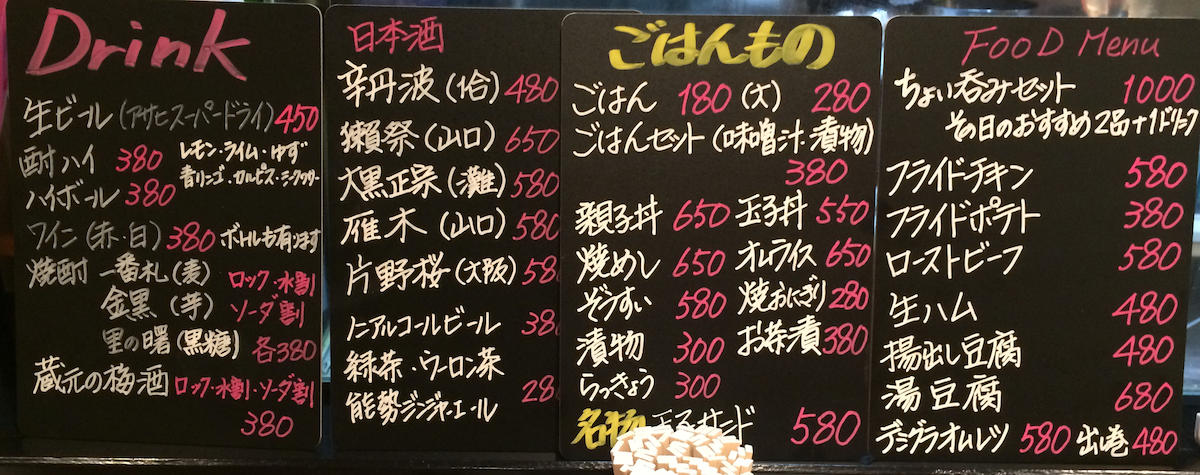 Drink
生ビール(アサヒスーパードライ)450
酎ハイ 380 レモン・ライム・ゆず
青リンゴ・カルピス・シークヮサー
ハイボール 380
ワイン(赤・白)380 ボトルも有ります
焼酎 一番札(麦) ロック・水割
金黒(芋) ソーダ割
里の曙(黒糖) 各380
蔵元の梅酒 ロック・水割・ソーダ割
380
日本酒
辛丹波(1合)480
獺祭(山口)650
大黒正宗(灘)580
雁木(山口)580
片野桜(大阪)580
ノンアルコールビール 380
緑茶・ウーロン茶
能勢ジンジャーエール 28
ごはんもの
ごはん 180 (大) 280
ごはんセット(味噌汁・漬物)
380
親子丼 650 玉子丼 550
焼めし 650 オムライス 650
ぞうすい 580 焼おにぎり 280
漬物 300 お茶漬 380
らっきょう 300
名物 玉子サンド 580
FooD Menu
ちょい呑みセット 1000
その日のおすすめ2品+1ドリンク
フライドチキン 580
フライドポテト 380
ローストビーフ 580
生ハム 480
揚出し豆腐 480
湯豆腐 680
デミグラオムレツ 580 出し巻 480